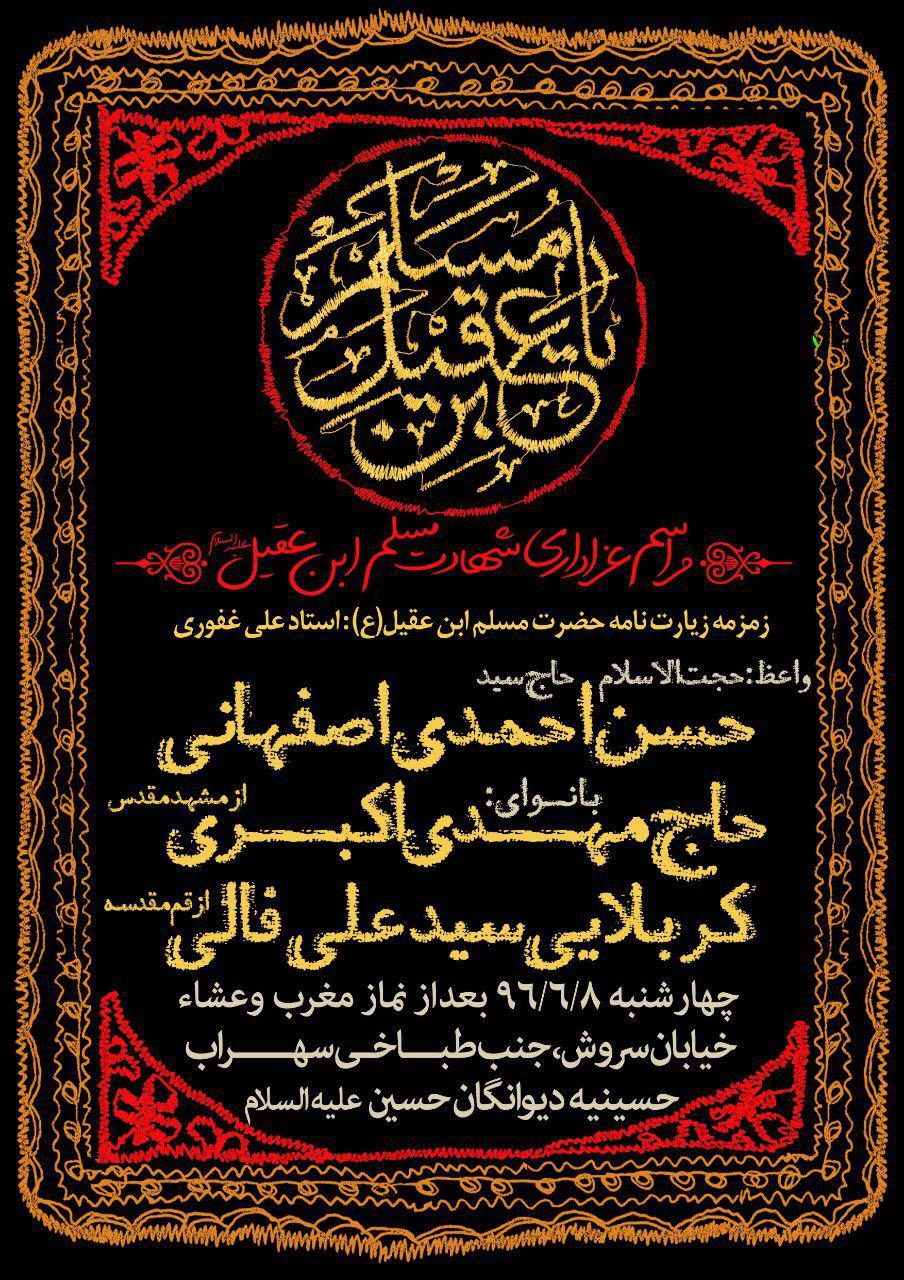 یا مسلم بن عقیل
مراسم عزاداری شهادت مسلم ابن عقیل علیه السلام
زمزمه زیارت نامه حضرت مسلم ابن عقیل(ع): استاد علی غفوری
واعظ: حجت الاسلام حاج سید
حسن احمدی اصفهانی
بانوای:
حاج مهدی اکبری از مشهد مقدس
کربلایی سید علی فالی از قم مقدسه
چهارشنبه ۹٦/٦/۸ بعداز نماز مغرب وعشاء
خیابان سروش، جنب طباخی سهراب
حسینیه دیوانگان حسین علیه السلام